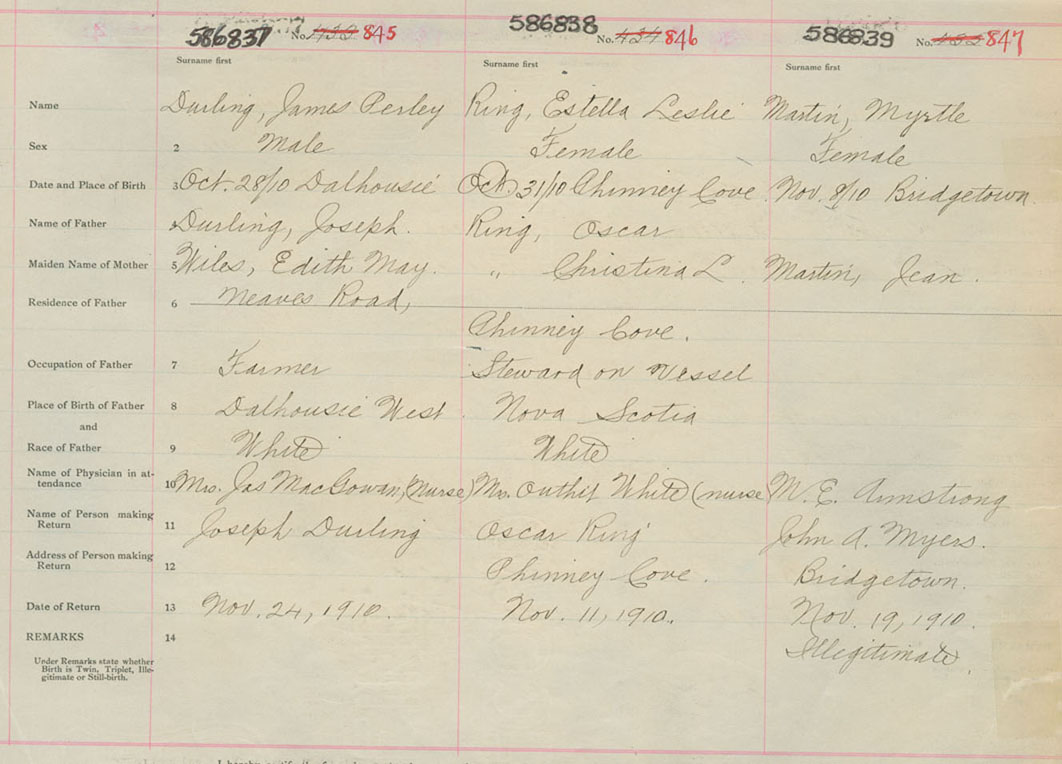 586837 No. 845 586838 No. 846 586839 No. 847
Surname first Surname first Surname first
Name Durling, James Perley Ring, Estella Leslie Martin, Myrtle
Sex 2 Male Female Female
Date and Place of Birth 3 Oct. 28/10 Dalhousie Oct. 31/10 Phinney Cove. Nov. 8/10 Bridgetown.
Name of Father 4 Durling, Joseph. Ring, Oscar
Maiden Name of Mother 5 Wiles, Edith May. " Christina L. Martin, Jean.
Residence of Father 6 Neaves Road,
Phinney Cove.
Occupation of Father 7 Farmer Steward on Vessel
Place of Birth of Father 8 Dalhousie West. Nova Scotia
and
Race of Father 9 White White
Name of Physician in at-
tendance 10 Mrs. Jas MacGowan, (nurse) Mrs. Outhit White (nurse) M. E. Armstrong
Name of Person making
Return 11 Joseph Durling Oscar Ring John A. Myers.
Address of Person making
Return 12 Phinney Cove. Bridgetown.
Date of Return 13 Nov. 24, 1910. Nov. 11, 1910. Nov. 19, 1910.
REMARKS 14 Illegitimate.
Under Remarks state whether
Birth is Twin, Triplet, Ille-
gitimate or Still-birth.